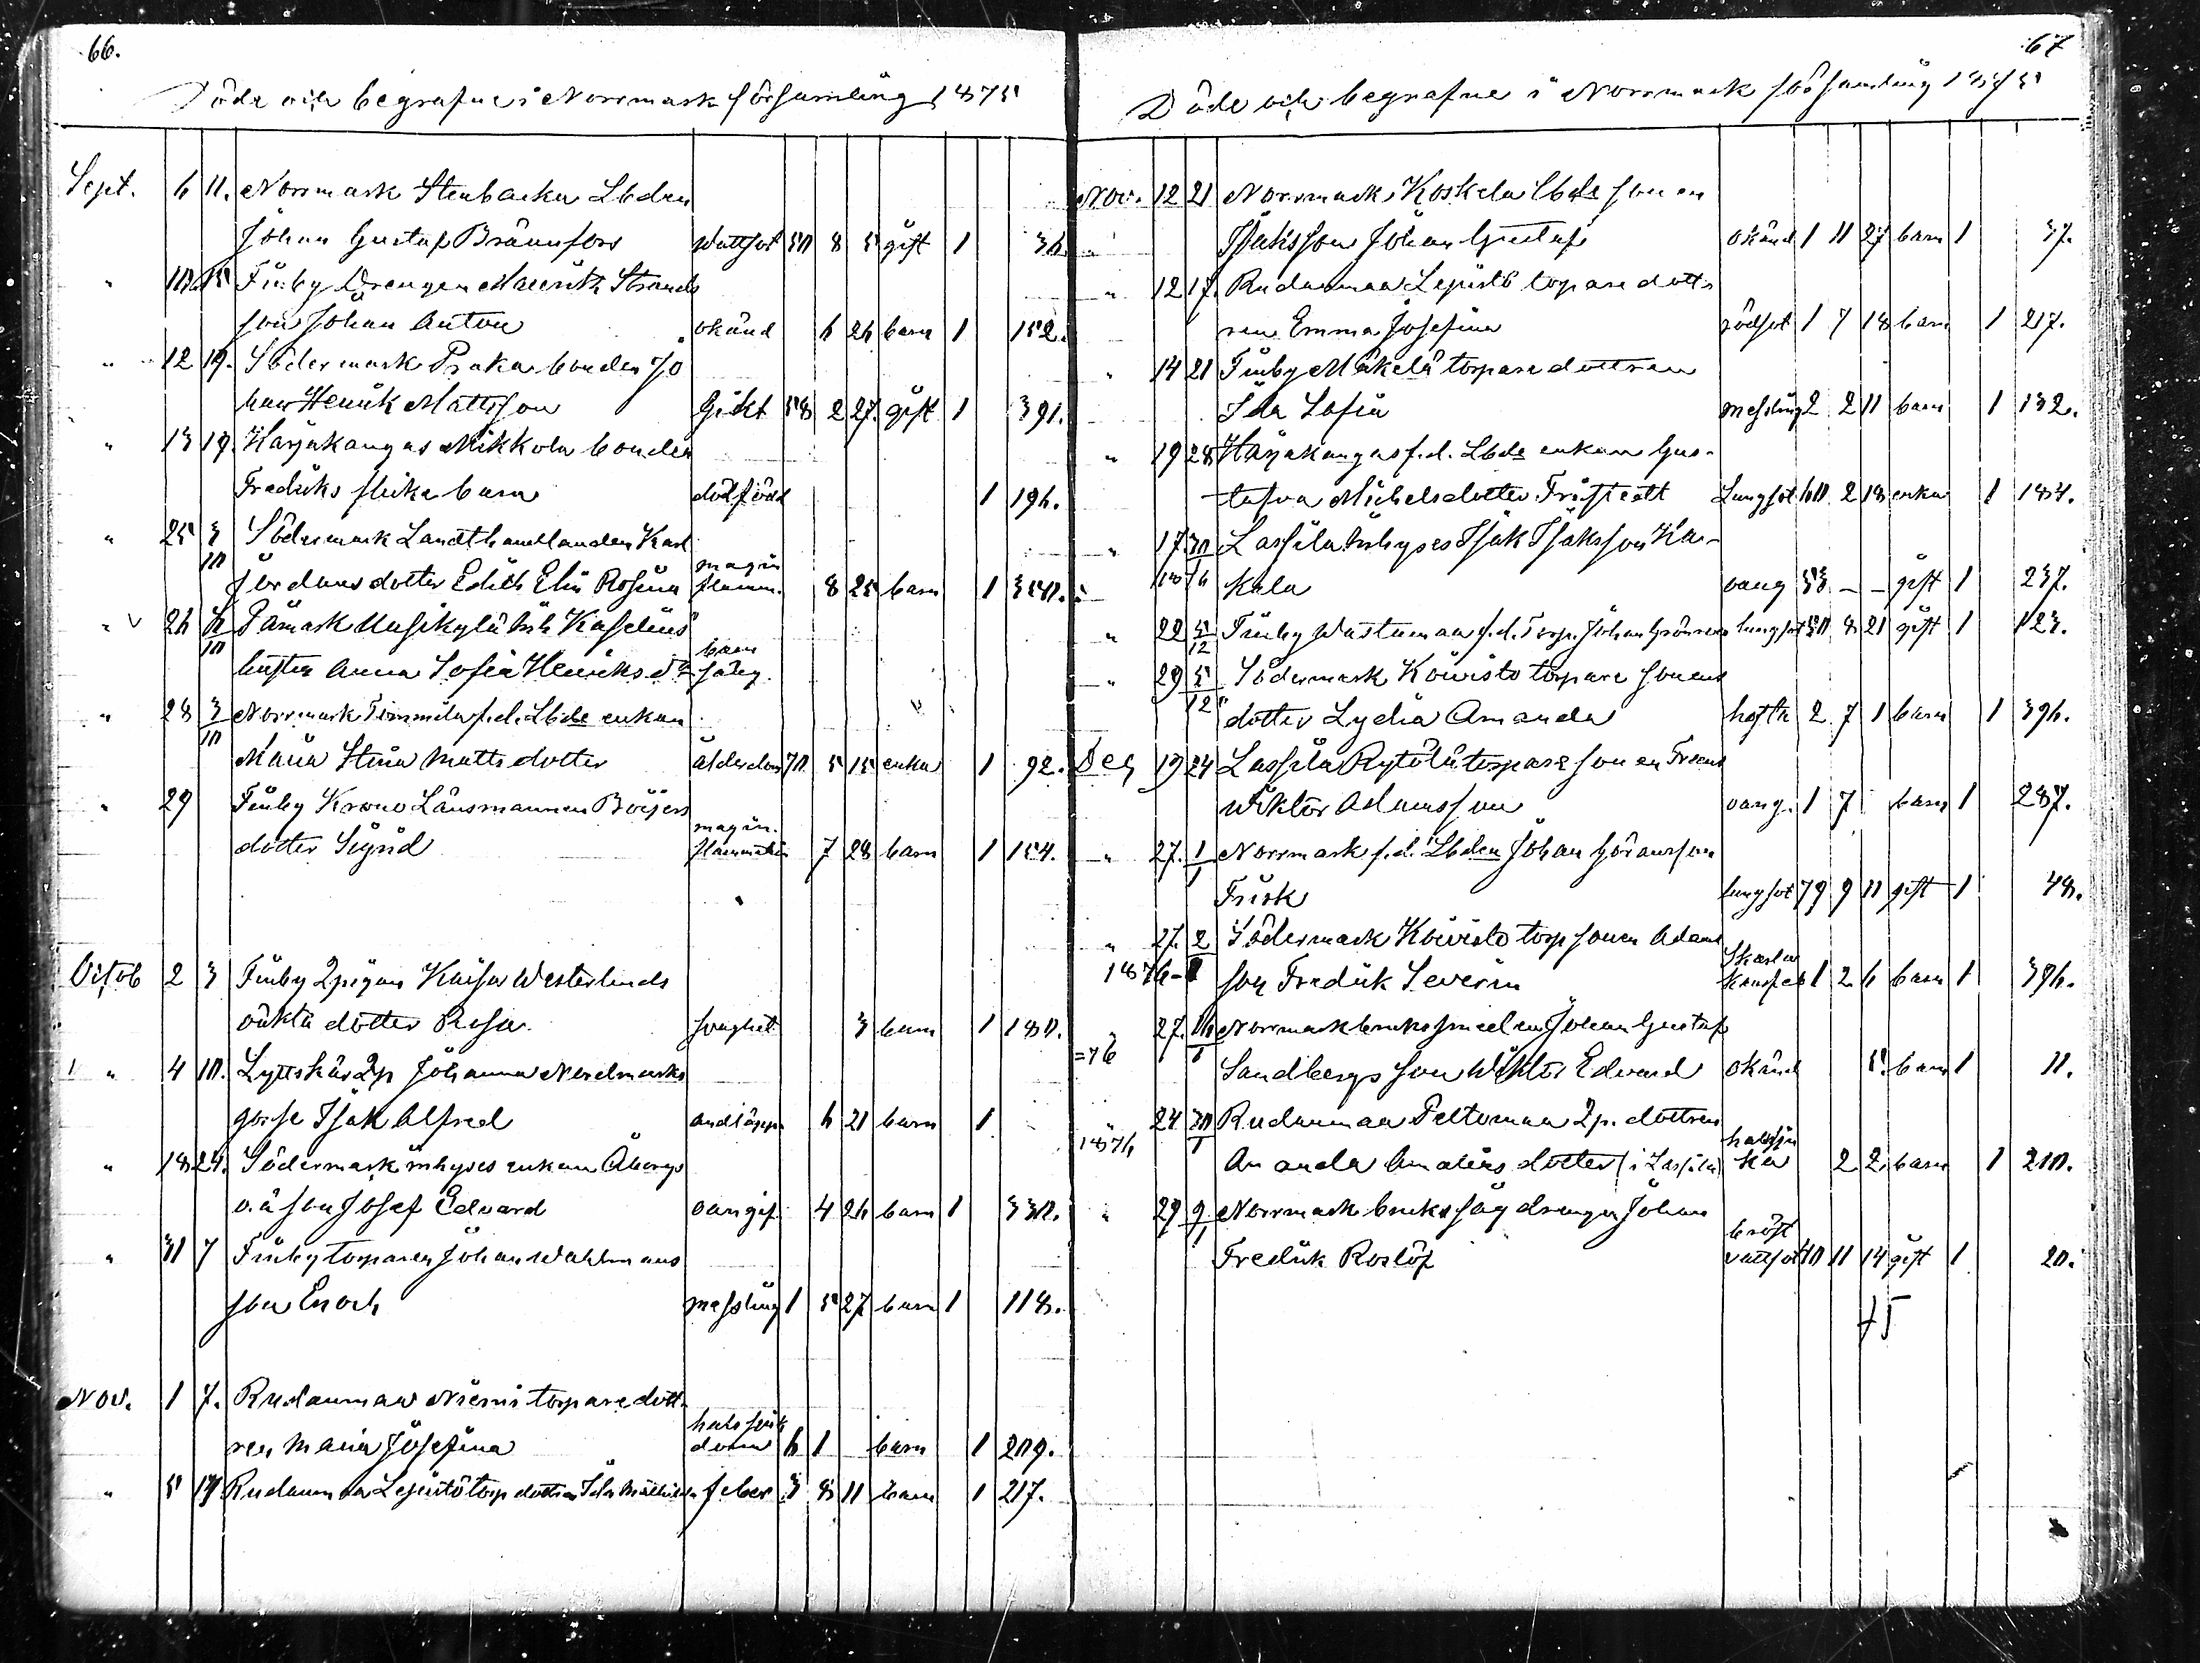 66.
Döde och begrafne i Norrmark församling 1875
Sept. 6 11. Norrmark Stenbacka Lbden
Johan Gustaf Brännfors Wattsot 50 8 5 gift 1 36.
" 10 15 Finby Drengen Strands
son Johan Anton okänd 6 26 barn 1 152.
" 12 19. Södermark bonden Jo
han Henrik Mattsson Gikt 58 2 27. gift 1 391.
" 13 19. Harjakangas Mikkola bonden
Fredriks flicka barn dödfödd 1 196.
" 25 3/10 Södermark Landthandlanden Karl
Jordans dotter Edith Elin Rosina magin flamm. 8 25 barn 1 350.
" 26 /10 Påmark
hustru Anna Sofia Henriksdr barn säng.
" 28 3/10 Norrmark Tommila f.d. Lbde enkan
Maria Stina Mattsdotter ålderdom 70 5 15 enka 1 92.
" 29 Finby Krono Länsmannen Böijers
dotter Sigrid magin. flammation 7 28 barn 1 154.
Octob 2 3 Finby Qpigan Kaisa Westerlunds
oäkta dotter Rosa. svaghet 3 barn 1 180.
" 4 10. Lyttskär Qp Johanna Nordmarks
gosse Isak Alfred andtäppa 6 21 barn 1
" 18 24. Södermark inhyses enkan Åbergs
o.ä son Josef Edvard oangif. 4 26 barn 1 330.
" 31 7 Finby torparen Johan Wahlmans
son Enoch messling 1 5 27 barn 1 118.
Nov. 1 7. Rudanmaa Niemi torpare dott
ren Maria Josefina halssjuk dom 6 1 barn 1 209.
" 5 17 Rudanmaa Lepistö torp dottren Ida feber 3 8 11 barn 1 217.
67
Döde och begrafne i Norrmark församling 1875
Nov. 12 21 Norrmark Koskela Lbde sonen
" Isaksson Johan Gustaf okänd 1 11 27 barn 1 37.
" 12 17. Rudanmaa Lepistö torpare dott
ren Emma Josefina rödsot 1 7 18 barn 1 217.
" 14 21 Finby Mäkelä torpare dottren
Ida Sofia messling 2 2 11 barn 1 132.
" 19 28 Harjakangas f.d. Lbde enkan Gus-
tafva Michelsdotter Fristedt Lungsot 60 2 18 enka 1 184.
" 17 30 Lassila Inhyses Isak Isaksson Ka-
kala oang 53 - - gift 1 237.
" 22 5/12 Finby Wästanmaa f.d. Torp. Johan Grönroos lungsot 50 8 21 gift 1 123.
" 29 5/12 Södermark Koivisto torpare sonens
dotter Lydia Amanda 2 7 1 barn 1 396.
Dec 19 24 Lassila Rytölä torpare sonen Frans
Wiktor Adamsson oang. 1 7 barn 1 287.
" 27. 1/1 Norrmark f.d. Lbden Johan Göransson
Frisk lungsot 79 9 11 gift 1 48.
" 27. 2 Södermark Koivisto torp sonen Adams
1876 - 1 son Fredrik Severin Skarla kansfeb 1 2 6 barn 1 396.
" 27. 16/1 Norrmark bruks smeden Johan Gustaf
=76 Sandbergs son Wiktor Edvard okänd 5 barn 1 11.
" 24 30/1 Rudanmaa Peltomaa Qp. dottren
1876 Amanda Amalias dotter (i Lassila) halssju ka 2 2 barn 1 210.
" 29 9/1 Norrmark bruks såg drengen Johan
Fredrik Roslöf bröst vattsot 40 11 14 gift 1 20.
75